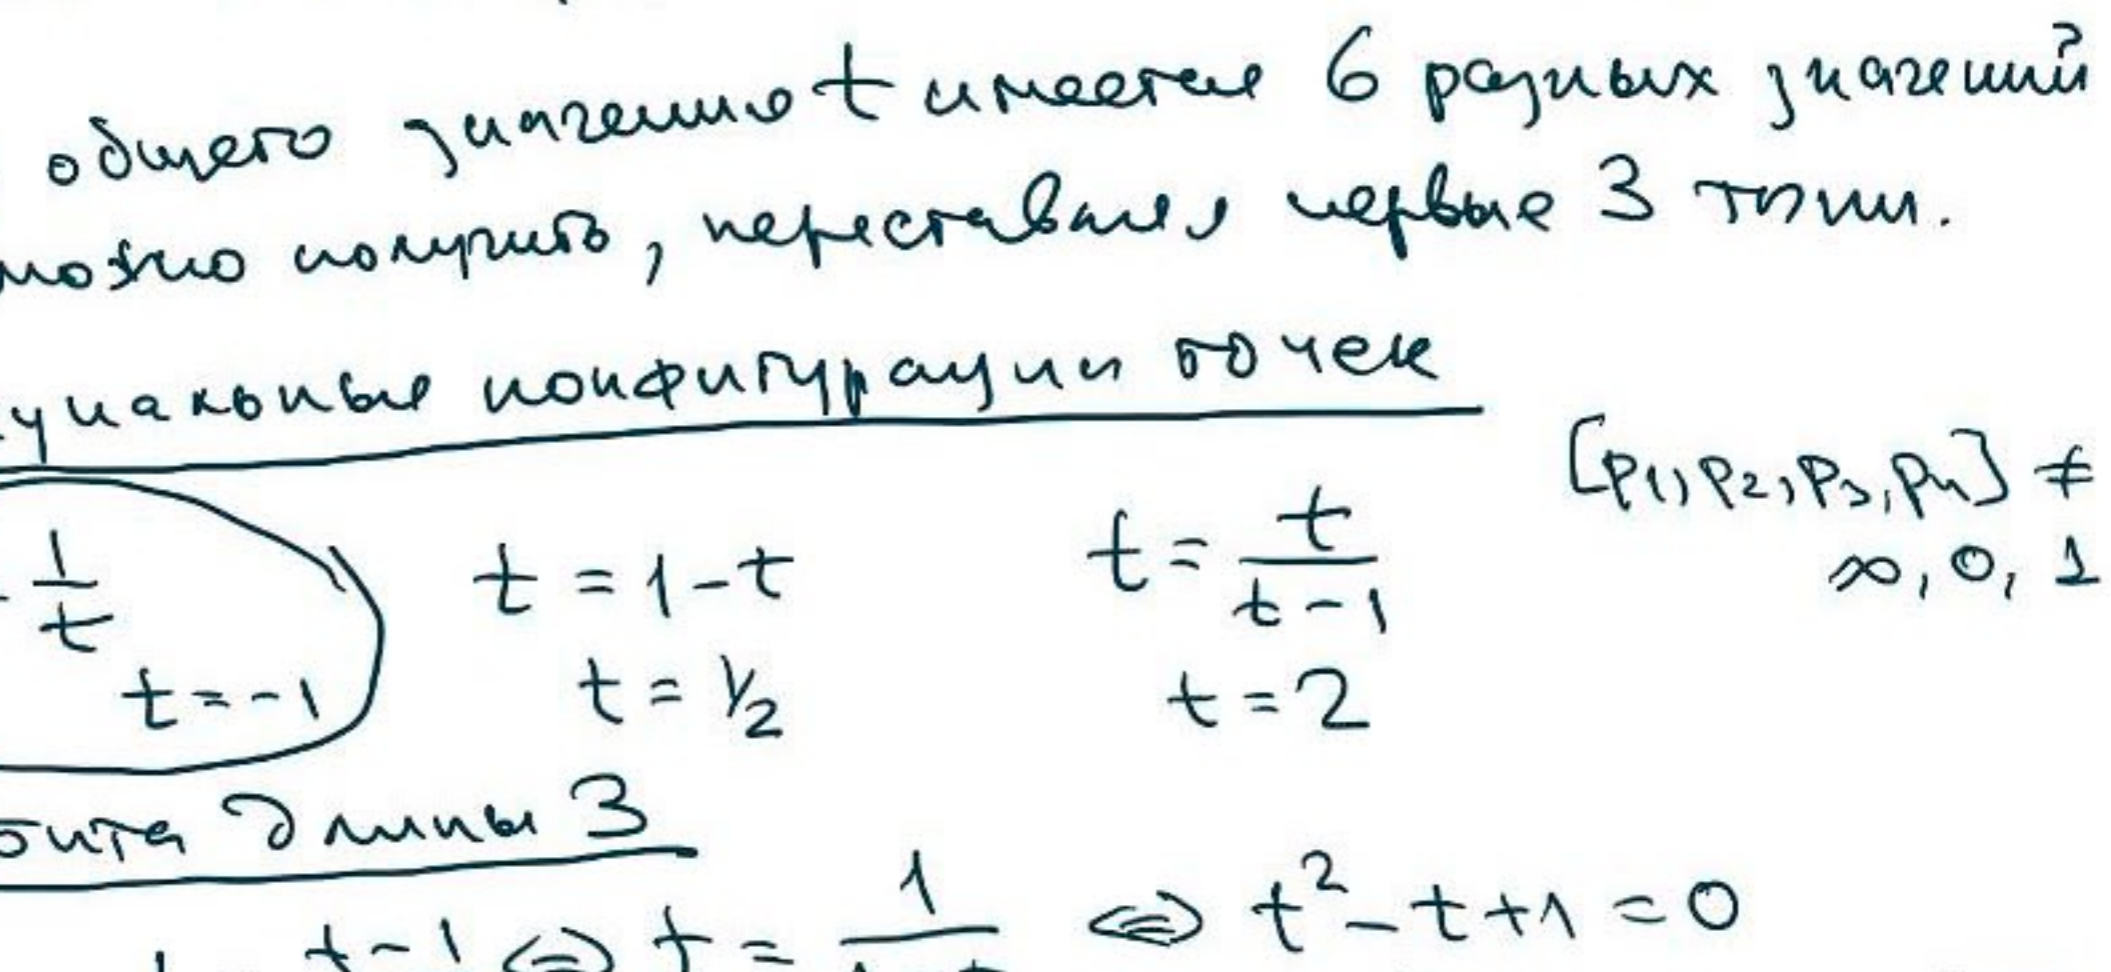 общего значения t имеется 6 разных значений
можно получить, переставляя первые 3 точки.
циальные конфигурации точек
[p1, p2, p3, p4] ≠ ∞, 0, 1
1/t t = 1-t t = t/(t-1)
t = -1 t = 1/2 t = 2
бита длины 3
t-1 ⇔ t = 1 ⇔ t² - t + 1 = 0